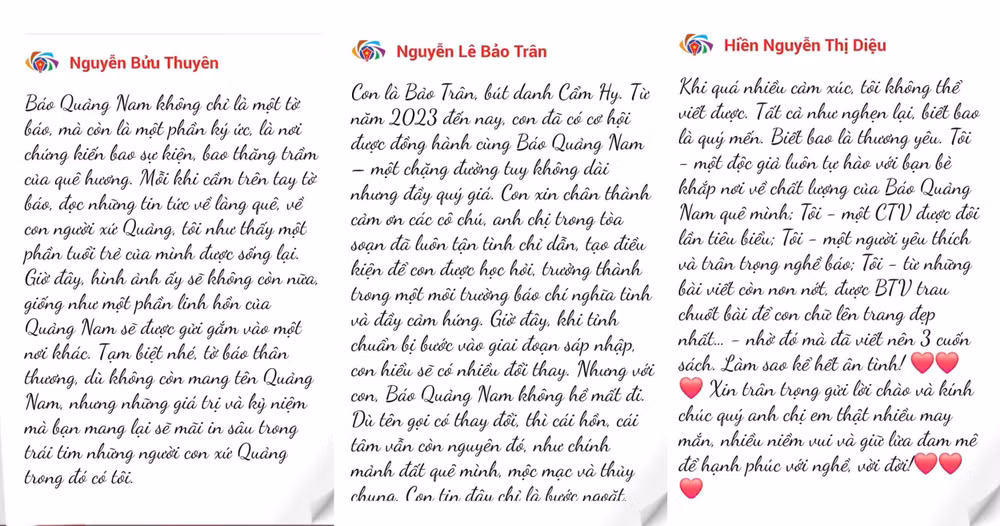 Nguyễn Bửu Thuyên
Báo Quảng Nam không chỉ là một tờ
báo, mà còn là một phần ký ức, là nơi
chứng kiến bao sự kiện, bao thăng trầm
của quê hương. Mỗi khi cầm trên tay tờ
báo, đọc những tin tức về làng quê, về
con người xứ Quảng, tôi như thấy một
phần tuổi trẻ của mình được sống lại.
Giờ đây, hình ảnh ấy sẽ không còn nữa,
giống như một phần linh hồn của
Quảng Nam sẽ được gửi gắm vào một
nơi khác. Tạm biệt nhé, tờ báo thân
thương, dù không còn mang tên Quảng
Nam, nhưng những giá trị và kỷ niệm
mà bạn mang lại sẽ mãi in sâu trong
trái tim những người con xứ Quảng
trong đó có tôi.
Nguyễn Lê Bảo Trân
Con là Bảo Trân, bút danh Cẩm Hy. Từ
năm 2023 đến nay, con đã có cơ hội
được đồng hành cùng Báo Quảng Nam
– một chặng đường tuy không dài
nhưng đầy quý giá. Con xin chân thành
cảm ơn các cô chú, anh chị trong tòa
soạn đã luôn tận tình chỉ dẫn, tạo điều
kiện để con được học hỏi, trưởng thành
trong một môi trường báo chí nghĩa tình
và đầy cảm hứng. Giờ đây, khi tỉnh
chuẩn bị bước vào giai đoạn sáp nhập,
con hiểu sẽ có nhiều đổi thay. Nhưng với
con, Báo Quảng Nam không hề mất đi.
Dù tên gọi có thay đổi, thì cái hồn, cái
tâm vẫn còn nguyên đó, như chính
mảnh đất quê mình, mộc mạc và thủy
chung. Con tin đây chỉ là bước ngoặt,
Hiền Nguyễn Thị Diệu
Khi quá nhiều cảm xúc, tôi không thể
viết được. Tất cả như nghẹn lại, biết bao
là quý mến. Biết bao là thương yêu. Tôi
- một độc giả luôn tự hào với bạn bè
khắp nơi về chất lượng của Báo Quảng
Nam quê mình; Tôi - một CTV được đôi
lần tiêu biểu; Tôi - một người yêu thích
và trân trọng nghề báo; Tôi - từ những
bài viết còn non nớt, được BTV trau
chuốt bài để con chữ lên trang đẹp
nhất... - nhờ đó mà đã viết nên 3 cuốn
sách. Làm sao kể hết ân tình! ❤️❤️
❤️ Xin trân trọng gửi lời chào và kính
chúc quý anh chị em thật nhiều may
mắn, nhiều niềm vui và giữ lửa đam mê
để hạnh phúc với nghề, với đời!❤️❤️
❤️